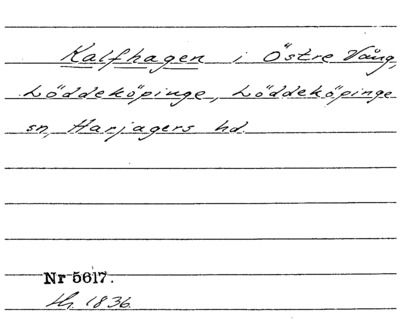 Kalfhagen i Östre Vång,
Löddeköpinge, Löddeköpinge
sn, Harjagers hd.
Nr 5617.
1836.